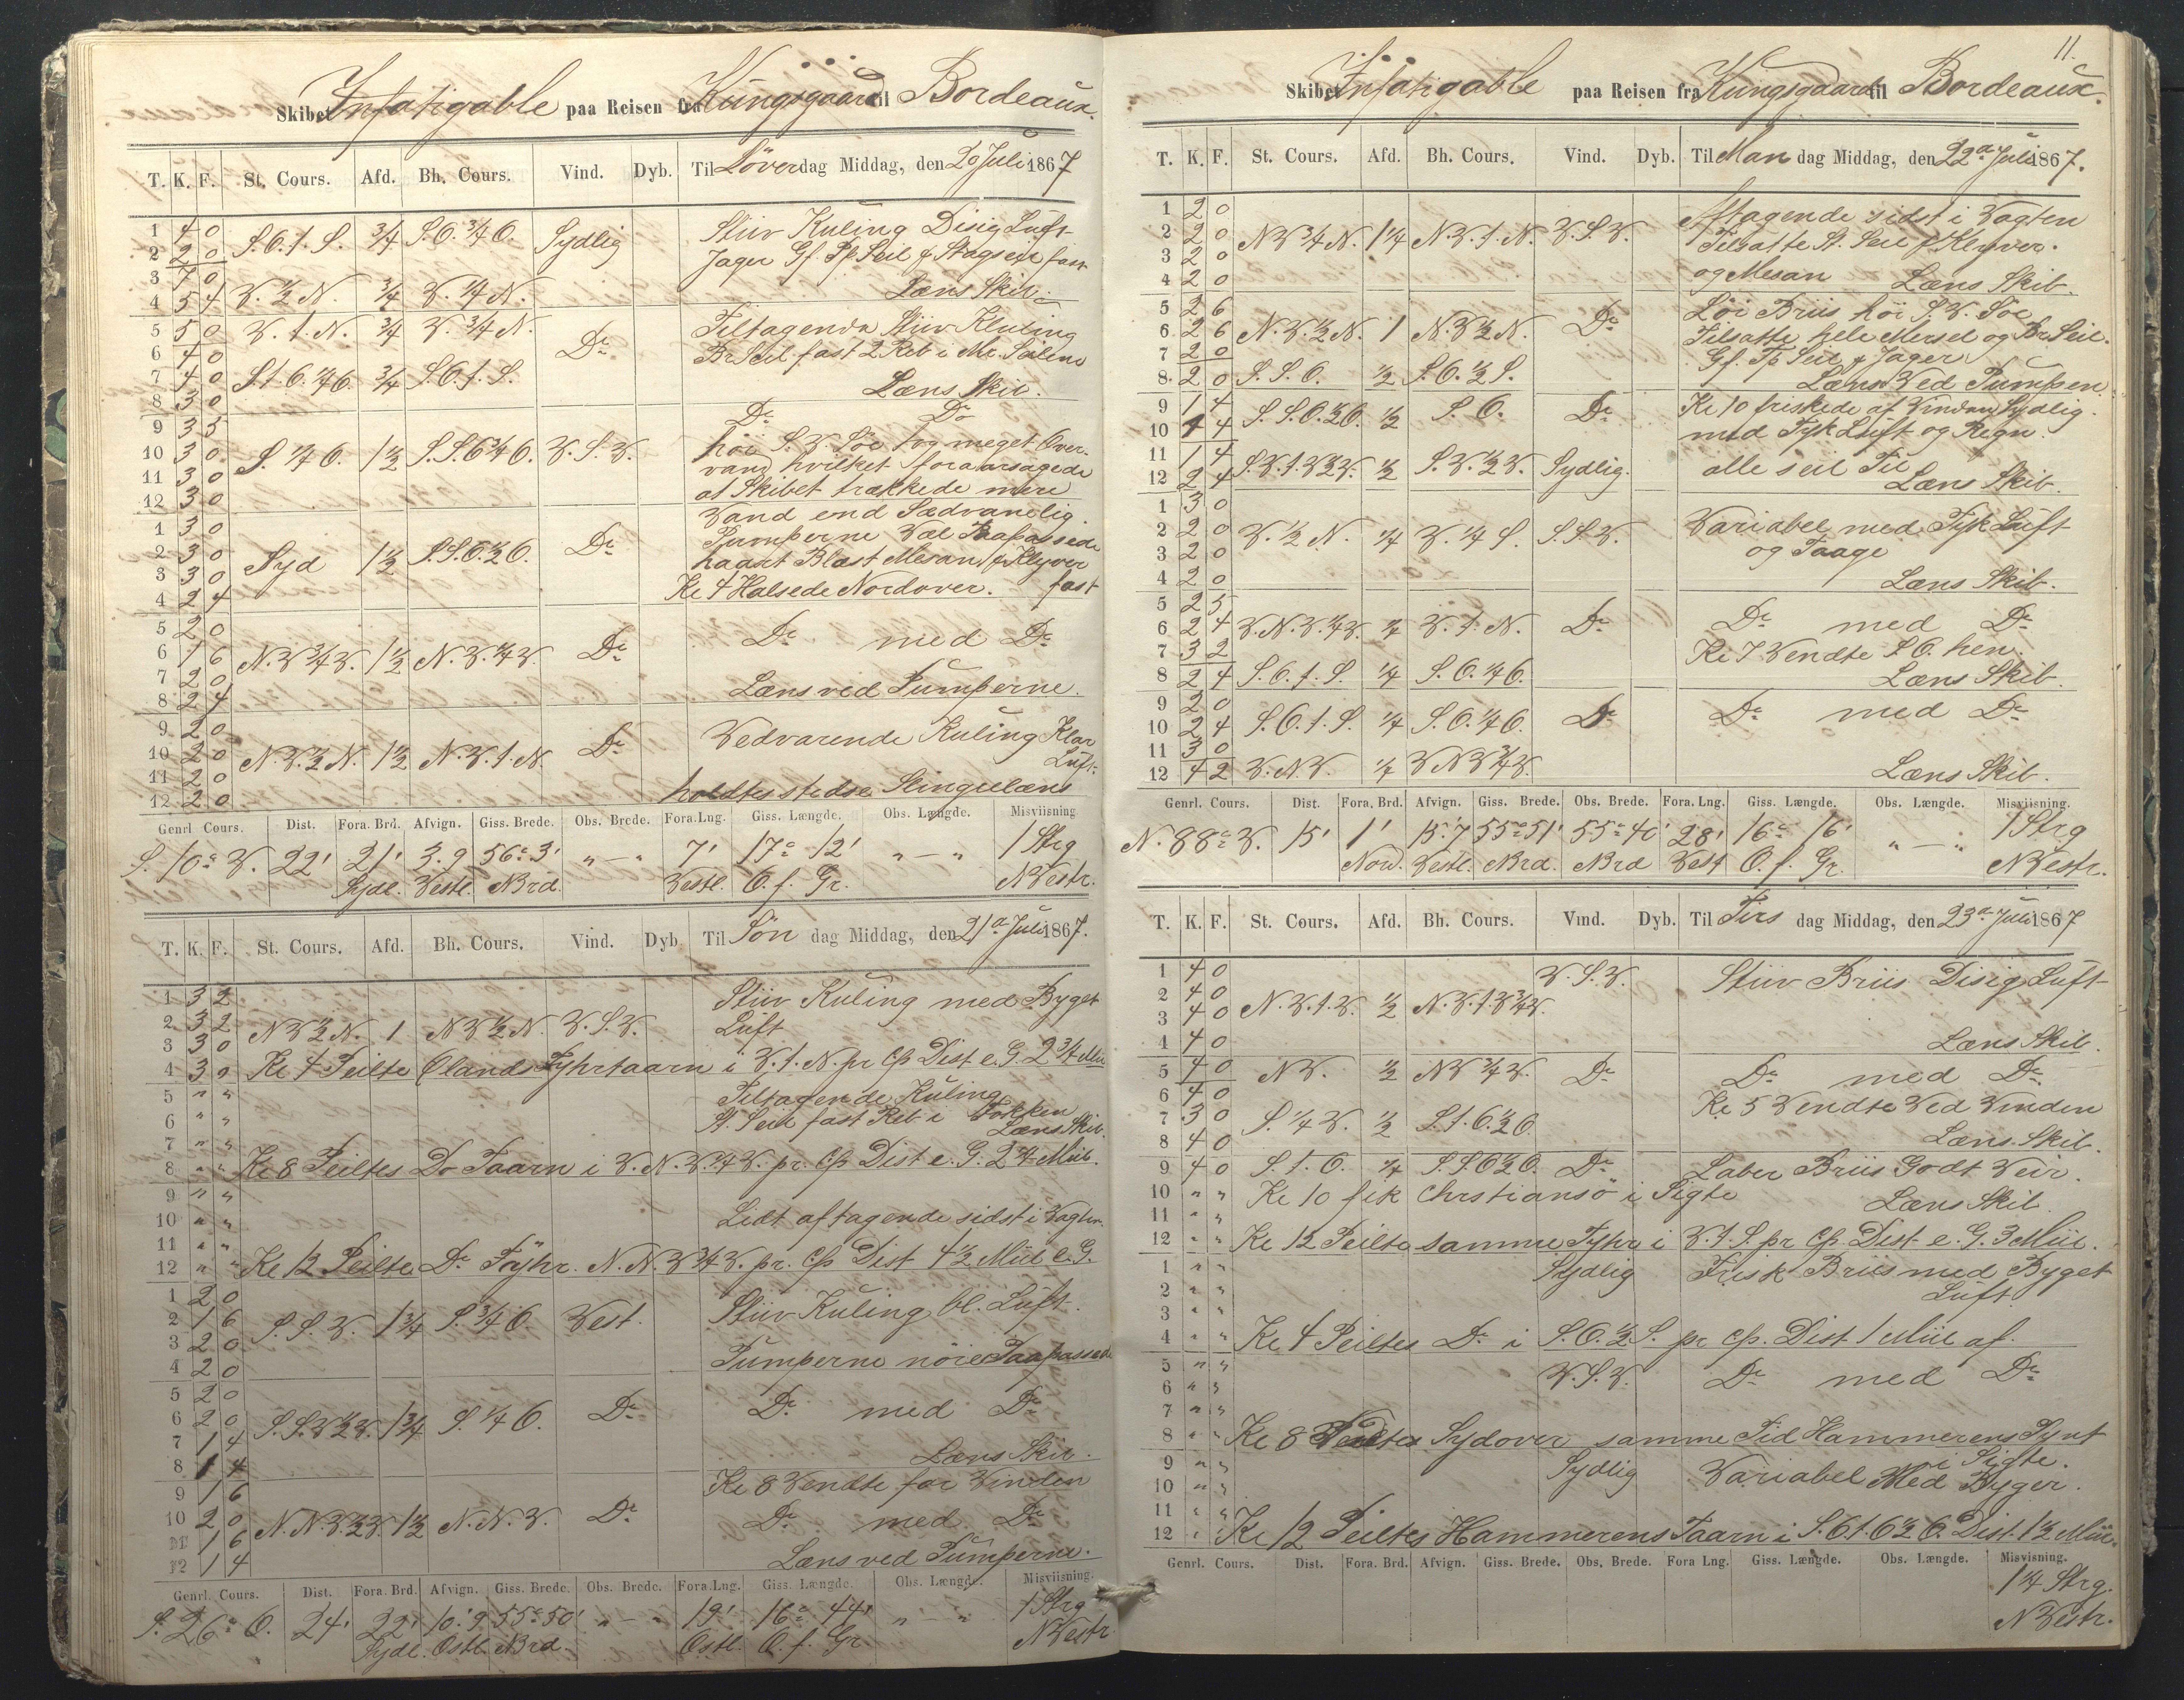 Skibet Infatigable paa Reisen fra Kungsgaard til Bordeaux.
T. K. F. St. Cours. Afd. Bh. Cours. Vind. Dyb. Til Löverdag Middag, den 20 Juli 1867
1 4 0 Stiiv Kuling Disig Luft
2 2 0 S.O.t.S. 3/4 S.O. 3/4 O. Sydlig Jager Gf. Tp Seil & Stagseil fast
3 7 0
4 5 4 V. 1/2 N. 3/4 V. 1/4 N. Læns Skib.
5 5 0 V.t.N. 3/4 V. 3/4 N. Do Tiltagende Stiiv Kuling
6 4 0 Br Seil fast 2 Reb i Mr. Seilene
7 4 0 S.t.O. 1/4 O. 3/4 S.O.t.S.
8 3 0 Læns Skib.
9 3 5 Do Do
10 3 0 S. 1/4 O. 1 1/2 S.S.O 3/4 O. V.S.V. høi S.V. Söe tog meget Over-
11 3 0 vand hvilket foraarsagede
12 3 0 at Skibet trækkede mere
1 3 0 Vand end Sædvanelig.
2 3 0 Syd 1 1/2 S.S.O. 1/2 O. Do Pumperne Vel Paapassede
3 3 0 haard Blæst Mesan & Klyver
4 2 4 Kl 4 Halsede Nordover. fast
5 2 0
6 1 6 N.V 3/4 V. 1 1/2 N.V. 1/4 V. Do Do med Do
7 2 0
8 2 4 Læns ved Pumperne.
9 2 0
10 2 0 N.V. 1/2 N. 1 1/2 N.V.t.N. Do Vedvarende Kuling Klar
11 2 0 Luft
12 2 0 holdtes stedse Slingelæns
Genrl. Cours. Dist. Fora. Brd. Afvign. Giss. Brede. Obs. Brede. Fora. Lng. Giss. Længde. Obs. Længde. Misviisning
S. 10° V. 22' 21' 3.9 56° 3' " — " 7' 17° 12' " — " 1 Strg
Sydl. Vestl. NBrd. Vestl. O. f. Gr. NVestr.
T. K. F. St. Cours. Afd. Bh. Cours. Vind. Dyb Til Sön dag Middag, den 21de Juli 1867.
1 3 2 Stiiv Kuling med Byget
2 3 2 NV 1/2 N. 1 NV 1/2 N. V.S.V. Luft
3 3 0
4 3 0 Kl 4 Peilte Ølands Fyhrtaarn i V.t.N. pr Cp Dist e. G. 2 3/4 Miil
5 " " Tiltagende Kuling
6 " " St. Seil fast Reb i Fokken
7 " " Læns Skib.
8 " " Kl 8 Peiltes Do Taarn i V.N.V. 1/4 V. pr. Cp Dist e. G. 2 1/4 Miil.
9 " "
10 " " Lidt aftagende sidst i Vagten
11 " "
12 " " Kl 12 Peilte Do Föyhr. N.N.V 3/4 V. pr. Cp Dist 4 1/2 Miil e. G.
1 2 0
2 1 6 S.S.V. 1 3/4 S. 3/4 O Vest. Stiiv Kuling bl. Luft.
3 2 0
4 2 0 Pumperne nöie Paapassede
5 2 0
6 2 0 S.S.V 1/2 V. 1 3/4 S. 1/4 O. Do Do med Do
7 1 4
8 1 4 Læns Skib.
9 1 6 Kl 8 Vendte for Vinden
10 2 0 N.N.V 1/2 V. 1 1/2 N.N.V. Do Do med Do
11 1 6
12 1 4 Læns ved Pumperne.
Genrl. Cours. Dist. Fora. Brd. Afvign. Giss. Brede. Obs. Brede. Fora. Lng. Giss. Længde. Obs. Længde. Misviisning.
S. 26° O. 24' 22' 10'.9 55° 50' " — " 19' 16° 44' " — " 1 Strg
Sydl. Ostl. NBrd. Ostl. O. f. Gr. NVestr
11.
Skibet Infatigable paa Reisen fra Kungsgaard til Bordeaux.
T. K. F. St. Cours. Afd. Bh. Cours. Vind. Dyb. Til Man dag Middag, den 22de Juli 1867.
1 2 0 Aftagende sidst i Vagten
2 2 0 NV 3/4 N. 1 1/4 N.V.t.N. V.S.V. Tilsatte St. Seil & Klyver.
3 2 0 og Mesan
4 2 0 Læns Skib.
5 2 6 Löi Briis höi S.V. Söe
6 2 6 N.V. 1/2 N. 1 N.V 1/2 N. Do Tilsatte hele Mersel og Br Seil.
7 2 0 Gf. Tp Seil & Jager
8 2 0 S.S.O. 1/2 S.O. 1/2 S. Læns Ved Pumpen
9 1 4 S.S.O. 1/2 O. 1/2 S.O. Do Kl 10 friskede af Vinden Sydlig.
10 1 4 med Tyk Luft og Regn.
11 1 4 alle seil Til
12 2 4 S.V.t.V 1/2 V. 1/2 S.V. 1/2 V. Sydlig. Læns Skib.
1 3 0
2 2 0 V. 1/2 N. 1/4 V. 1/4 S. S.S.V. Variabel med Tyk Luft
3 2 0 og Taage
4 2 0 Læns Skib.
5 2 5
6 2 4 V.N.V. 1/4 V. 1/4 V.t.N. Do Do med Do
7 3 2 Kl 7 Vendte S.O. hen.
8 2 4 S.O.t.S. 1/4 S.O. 1/4 O. Læns Skib.
9 2 0
10 2 4 S.O.t.S. 1/4 S.O. 1/4 O. Do Do med Do
11 3 0
12 4 2 V.N.V. 1/4 VNV 3/4 V. Læns Skib.
Genrl. Cours. Dist. Fora. Brd. Afvign. Giss. Brede. Obs. Brede. Fora. Lng. Giss. Længde. Obs. Længde. Misviisning.
N. 88° V. 15' 1' 15'.7 55° 51' 55° 40' 28' 16° 16' " — " 1 Strg
Nord. Vestl. NBrd. NBrd Vest O. f. Gr. NVestr.
T. K. F. St. Cours. Afd. Bh. Cours. Vind. Dyb. Til Tirs dag Middag, den 23de Juli 1867
1 4 0 V.S.V. Stiiv Briis Disig Luft
2 4 0
3 4 0 N.V.t.V. 1/2 N.V.t.V 3/4 V.
4 4 0 Læns Skib.
5 4 0 NV. 1/2 NV 3/4 V. Do Do med Do
6 4 0 Kl 5 Vendte Ved Vinden
7 3 0 S. 1/4 V. 1/2 S.t.O. 1/2 O.
8 4 0 Læns Skib.
9 4 0 S.t.O. 1/4 S.S.O 1/2 O. Do Laber Briis Godt Veir.
10 " " Kl 10 fik Chrstiansö i Sigte
11 " " Læns Skib
12 " " Kl 12 Peilte samme Fyhr i V.t.S. pr Cp. Dist. e. G. 3 Miil.
1 " " Sydlig Frisk Briis med Byget
2 " " Luft
3 " "
4 " " Kl 4 Peiltes Do i S.O. 1/2 S. pr Cp. Dist 1 Miil af.
5 " " V.S.V. Do med Do
6 " "
7 " "
8 " " Kl 8 Vendtes Sydover samme Tid Hammerens Pynt
9 " " Sydlig i Sigte.
10 " " Variabel Med Byger.
11 " "
12 " " Kl 12 Peiltes Hammerens Taarn i S.O.t.O 1/2 O. Dist. 1 1/2 Miil.
Genrl. Cours. Dist. Fora. Brd. Afvign. Giss. Brede. Obs. Brede. Fora Lng. Giss. Længde. Obs. Længde. Misvisning.
1 1/4 Strg.
NVestr.